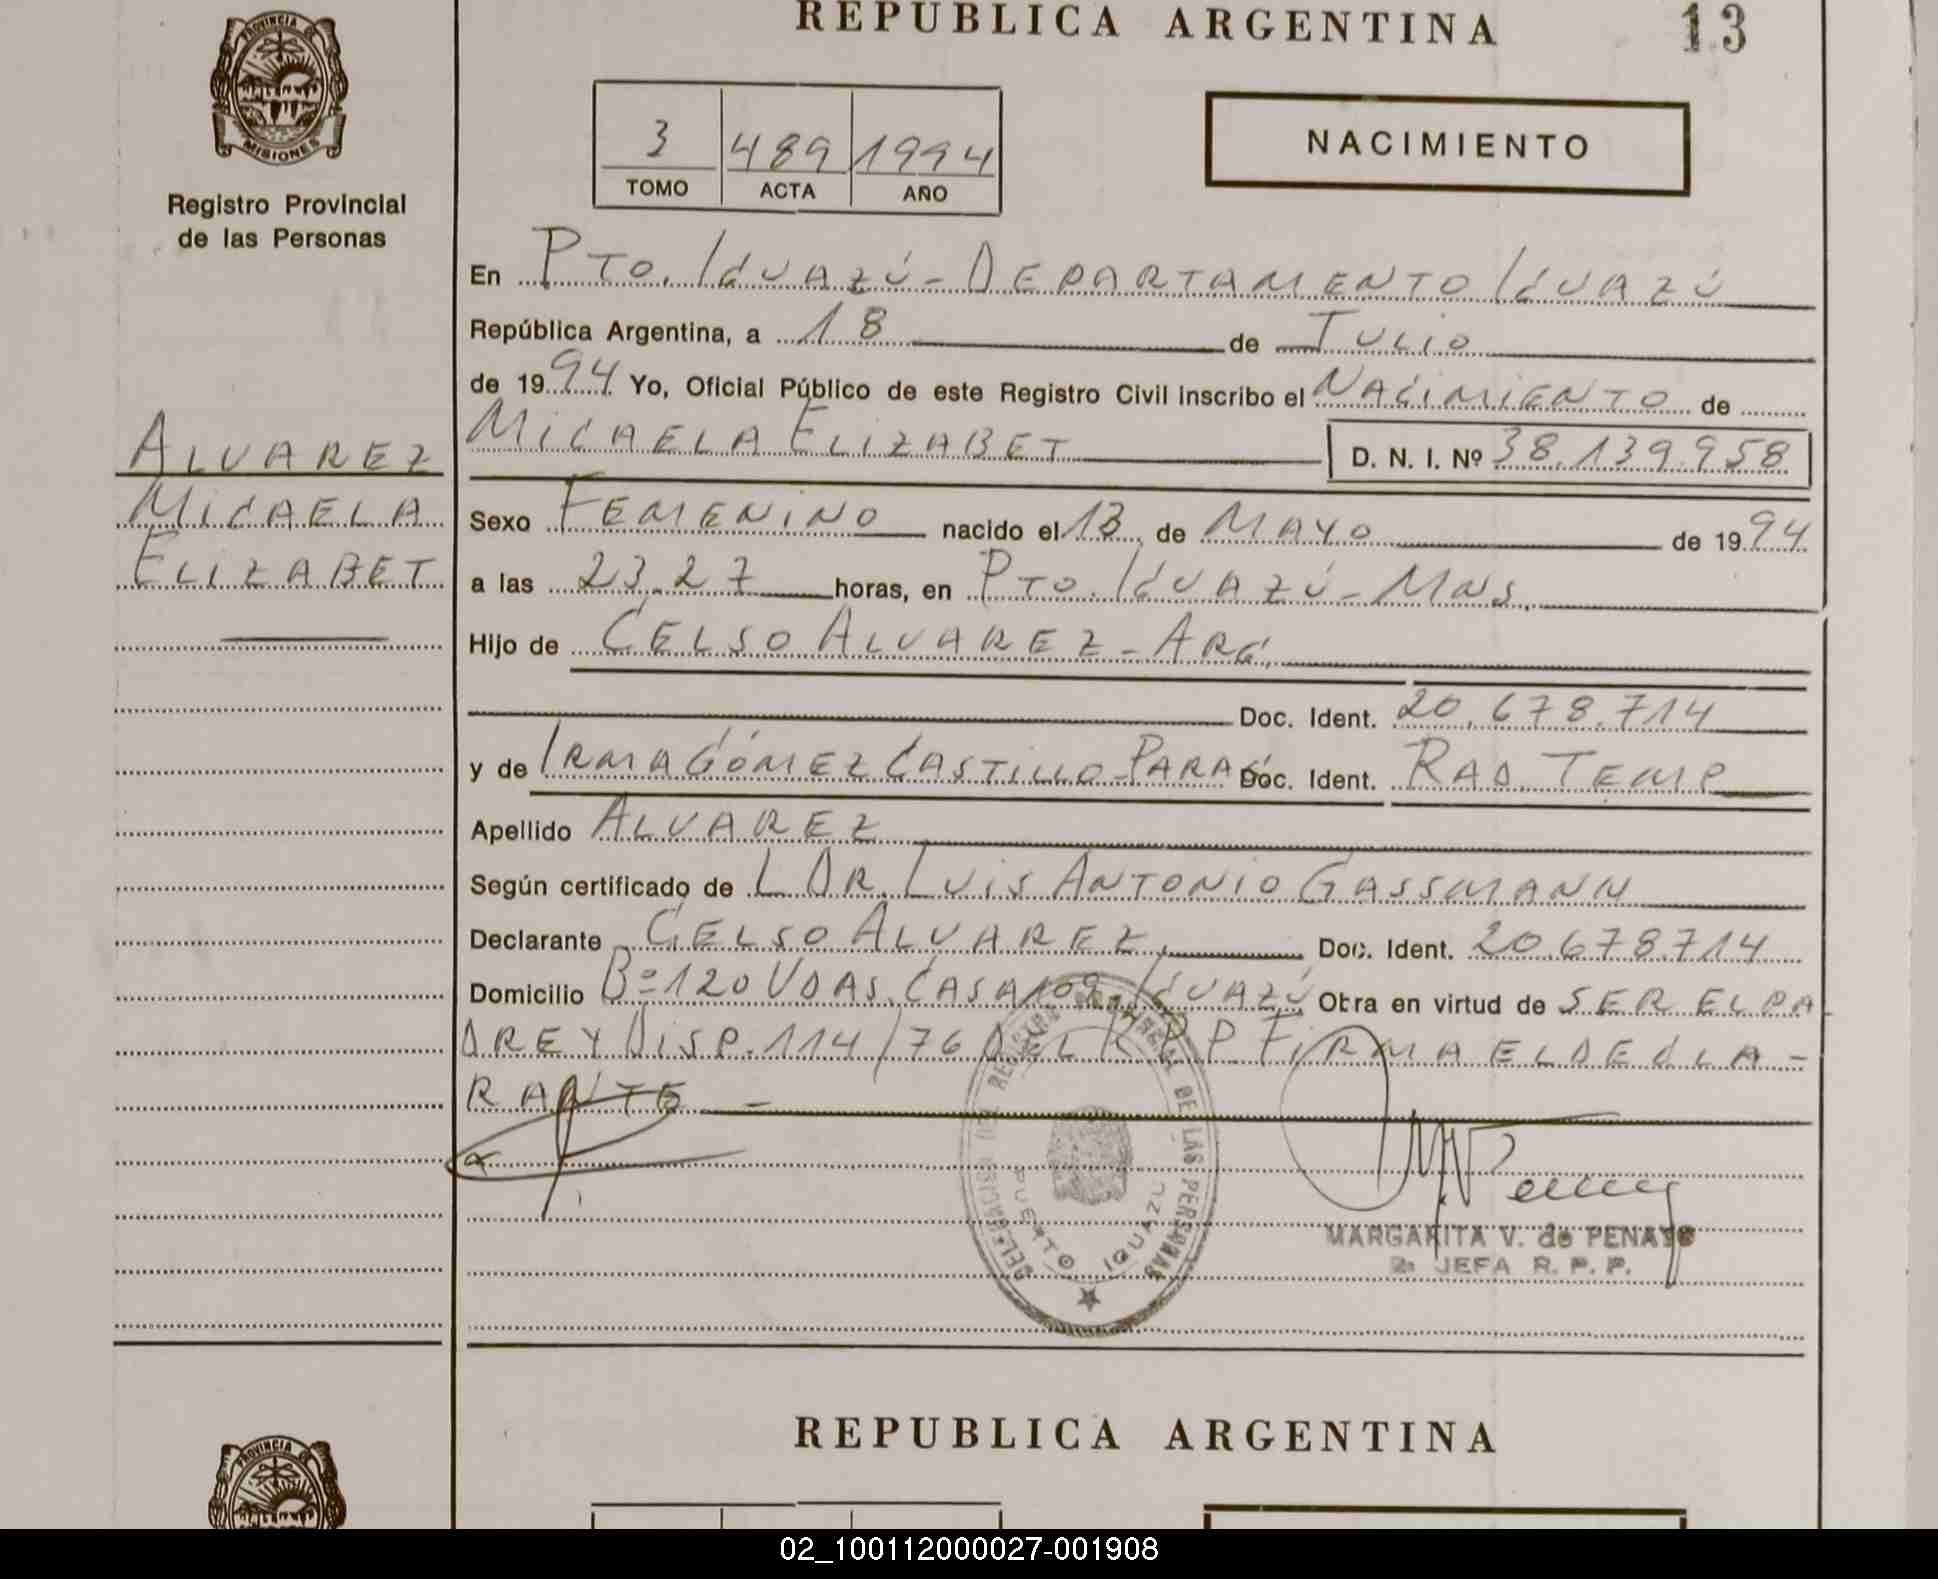 REPUBLICA ARGENTINA
13
PROVINCIA DE
MISIONES
Registro Provincial
de las Personas
3 489 1994
TOMO ACTA AÑO
NACIMIENTO
En PTO. IGUAZÚ - DEPARTAMENTO IGUAZÚ
República Argentina, a 18 de JULIO
de 1994 Yo, Oficial Público de este Registro Civil inscribo el NACIMIENTO de
ALVAREZ
MICAELA ELIZABET D. N. I. Nº 38.139.958
MICAELA
Sexo FEMENINO nacido el 13 de MAYO de 1994
ELIZABET
a las 23.27 horas, en PTO. IGUAZÚ - MNS.
Hijo de CELSO ALVAREZ - ARG.
Doc. Ident. 20.678.714
y de IRMA GÓMEZ CASTILLO - PARAG Doc. Ident. RAD. TEMP
Apellido ALVAREZ
Según certificado de L DR. LUIS ANTONIO GASSMANN
Declarante CELSO ALVAREZ. Doc. Ident. 20.678.714
Domicilio Bº 120 VDAS. CASA 109. IGUAZÚ Obra en virtud de SER EL PA
DRE Y DISP. 114/76 DEL R P P FIRMA EL DECLA-
RANTE -
DELEGACION DEL REGISTRO PROVINCIAL DE LAS PERSONAS
PUERTO IGUAZU
MARGARITA V. de PENAYO
2a JEFA R. P. P.
REPUBLICA ARGENTINA
PROVINCIA DE
02_100112000027-001908